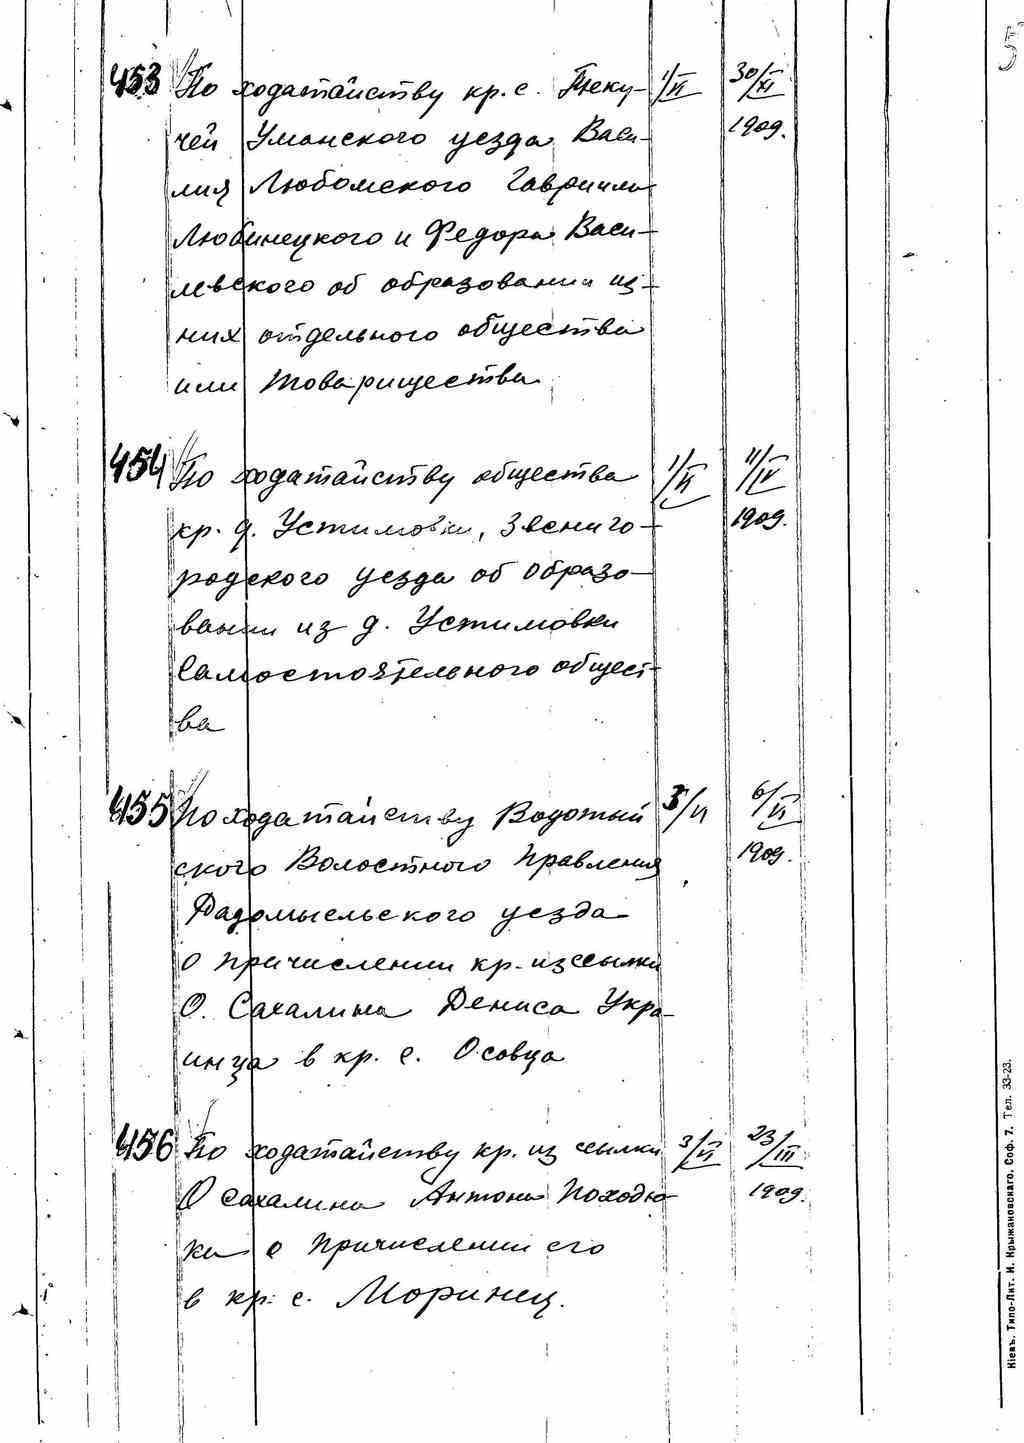 5
453 По ходатайству кр. с. Теку- 1/II 30/XI
чей Уманского уезда Васи- 1909.
лия Любомского Гавриила
Любинецкого и Федора Васи-
левского об образовании из
них отдельного общества
или товарищества
454 По ходатайству общества 1/II 11/IV
кр. д. Устимовки, Звениго- 1909.
родского уезда об образо-
вании из д. Устимовки
самостоятельного общест-
ва
455 По ходатайству Водотый 3/II 6/II
ского Волостного Правления 1909.
Радомысельского уезда
о причислении кр. из ссылки
О. Сахалина Дениса Укра-
инца в кр. с. Осовца
456 По ходатайству кр. из ссылки 3/II 23/III
О Сахалина Антона Походю- 1909.
ка о причислении его
в кр. с. Моринец.
Кіевъ. Типо-Лит. И. Крыжановскаго. Соф. 7. Тел. 33-23.